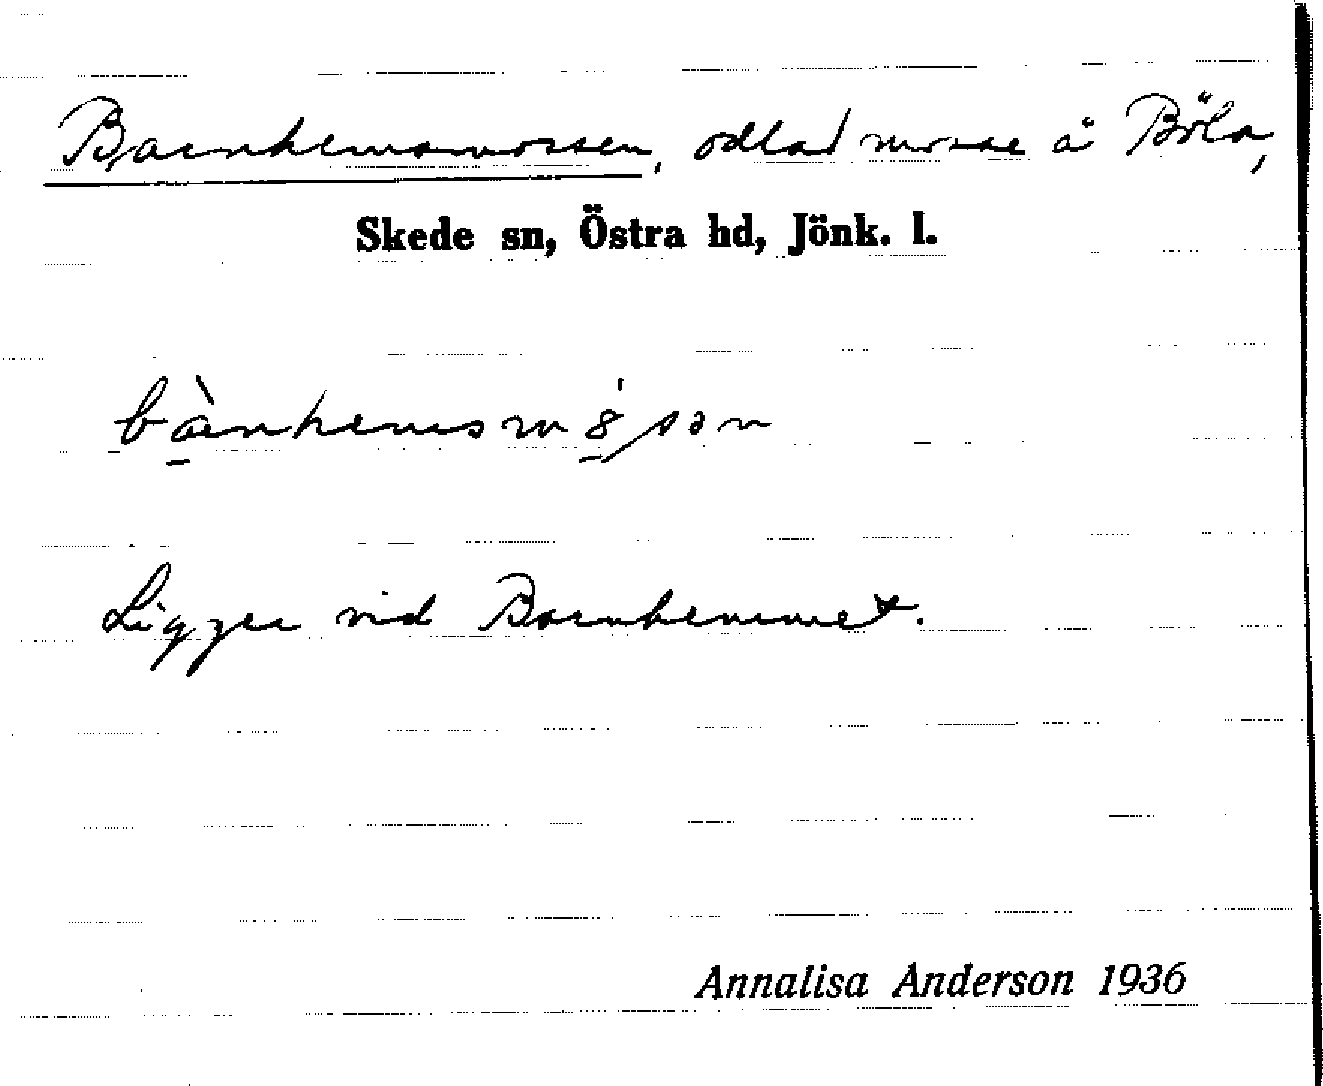 Barnhemsmossen, odlad mosse å Böla,
Skede sn, Östra hd, Jönk. l.
Ligger vid Barnhemmet.
Annalisa Anderson 1936